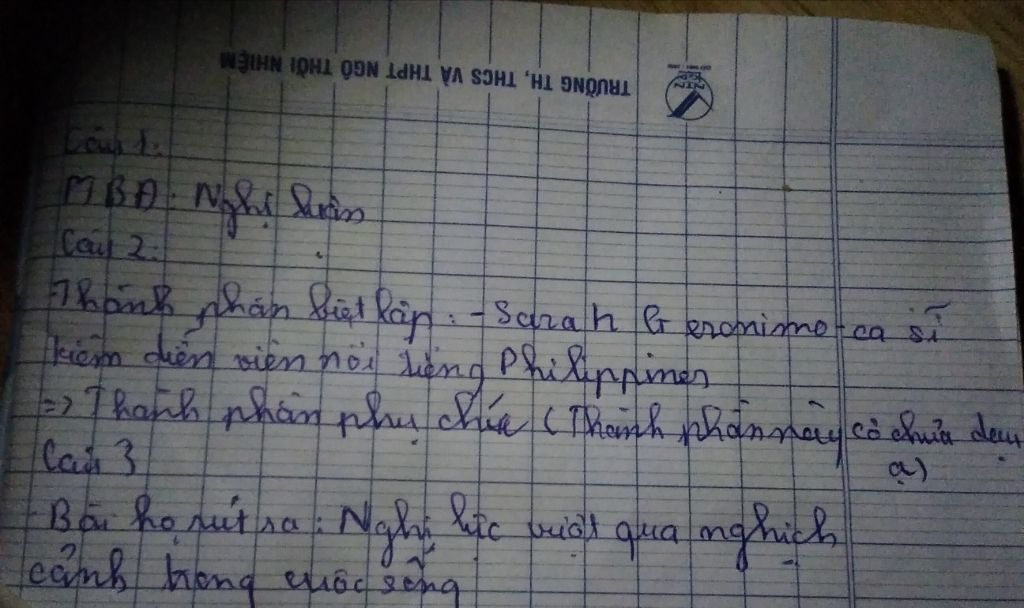 TRƯỜNG TH, THCS VÀ THPT NGÔ THỜI NHIỆM
Câu 1:
PTBĐ: Nghị luận
Câu 2:
Thành phần biệt lập: - Sarah Geronimo - ca sĩ
kiêm diễn viên nổi tiếng Philippines
=> Thành phần phụ chú (Thành phần này có chứa dấu
Câu 3
- Bài học rút ra: Nghị lực vượt qua nghịch
cảnh trong cuộc sống